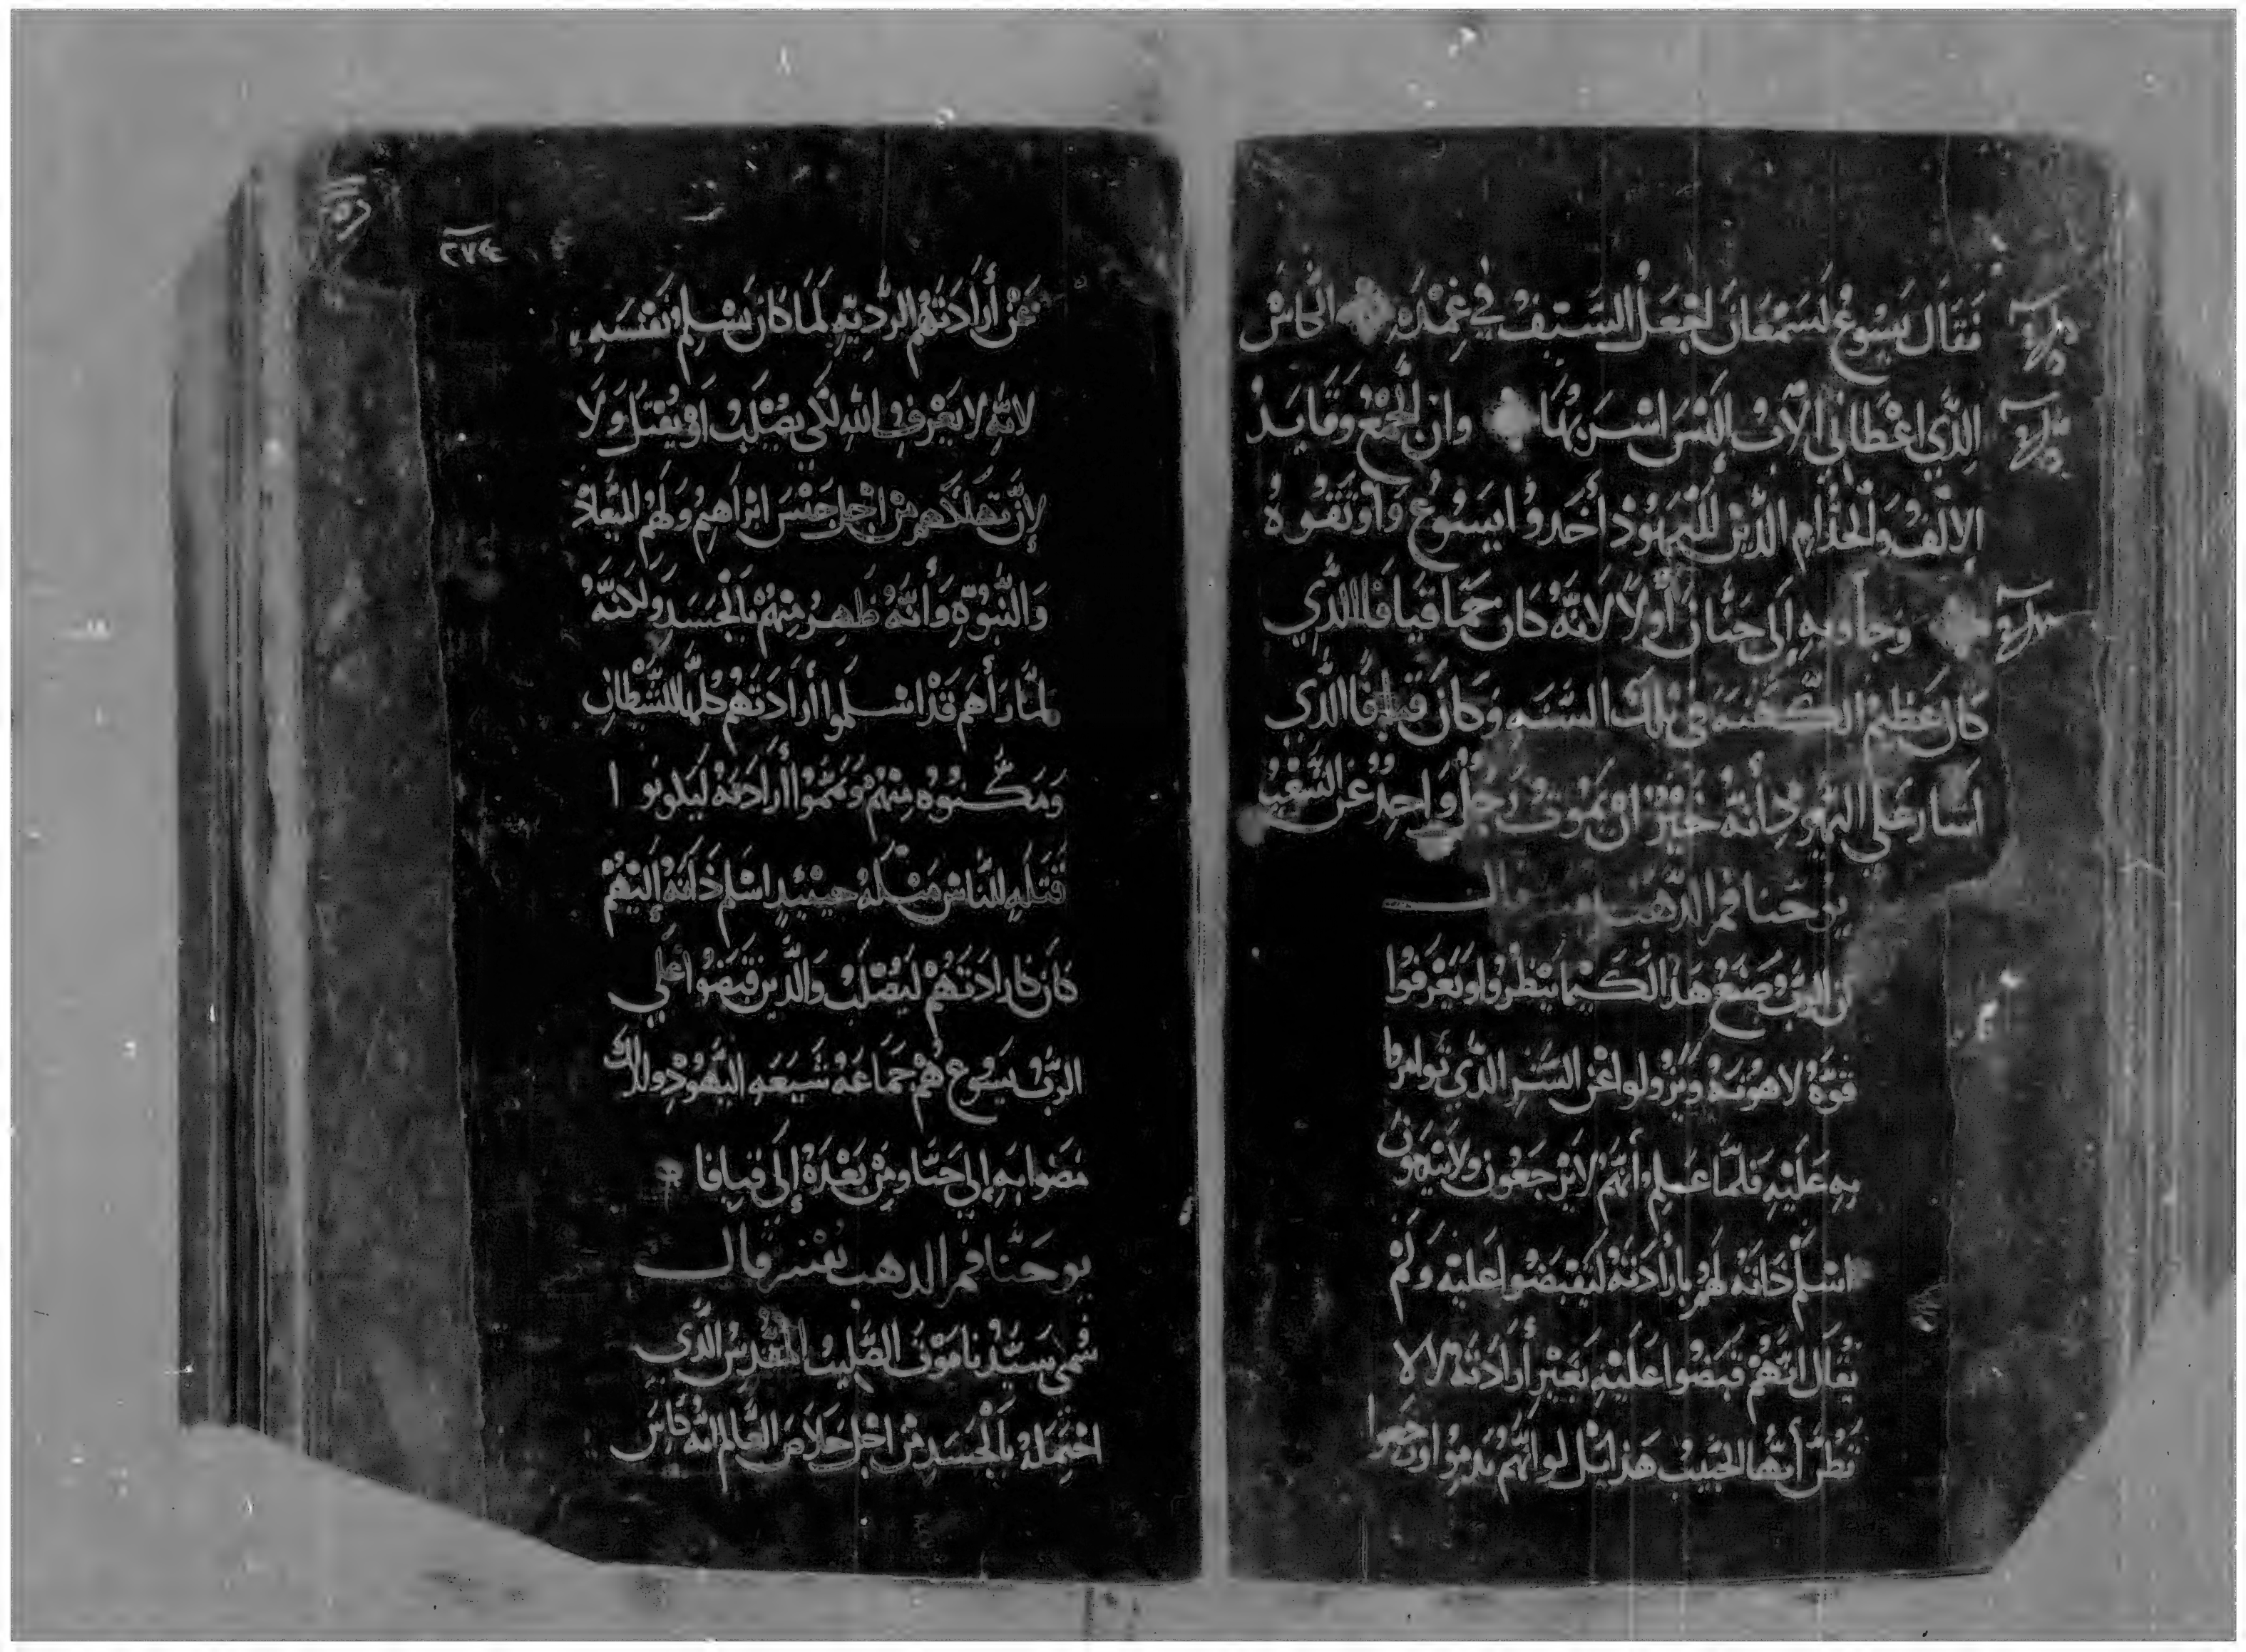 فَقَال يَسُوعُ لسَمْعَانَ اجْعَلُ السَيفُ في غِمْدَهِ الكاسْ
الِذَّي اعْطَانِي الآبُ الَيْسَ اشْرَبُهَا وان الجَمْعُ وَقَايدْ
الالفْ وَالخُدَّام الدَّين للْيَهُودْ أخَدوُا يسَوُعُ وَاوْتَقوُهُ
وَجَاو بهِ إلَى حَنَّانَ أوَلاً لانَهُ كانَ حَمَا قيَافا الدَّي
كانَ عَظِيمْ الكَهَنَه فِي تلك السَنَه وَكانَ قيَافا الدَّي
اشَار عَلي اليَهُود أنَهُ خَيْرٌ ان يَموُتَ رَجُلٌ وَاحِدٌ عَن الشَعْبْ
يوحَنا فمر الدَّهَب
ان الرَبْ صَنَعَ هَذا لكَيمَا يَنْظُروُا وَيَعْرَفوُا
قوَّةْ لاهُوتَهُ وَيَزُولوا عَن السَّرِ الدَّي توامروا
بهِ عَلَيْهِ فَلَمَّا عَلِم أنهُم لايَرْجَعُون ولايَنْتهوُن
اسْلَم دَاتهُ لهُم بأرَادَتَهُ ليَقبَضُوا عَليْه وَلَمْ
يُقال انَّهُم قَبَضُوا عَلَيْهِ بغَيْر أرَادَتهُ لالا
نَظُر أيُّها الحَبَيبْ هَذا لَو انَهُم نَدمُوا اوْ رَجَعوا
٢٧٤
عَنْ أرَادَتهُم الرَّدِيَّهِ لَمَا كانَ يَسْلِم نَفسَهِ
لانهُ لا يَعْرفْ اللهِ لكَي يصُلَبْ اوْ يُقتَل وَلا
لإنَّ تهلَكهم مِن اجْل جَنْسَ ابْرَاهِيمُ وَلَهُم الميْعَادْ
وَالنُبُوَّهِ وَأنَهُ ظَهِرْ مِنهُم بالجَسَدِ وَلانهُ
لمَّا رَأهم قَدْ اسْلموا أرَادَتهُم كلهَا للشَّطَان
وَمَكّنوُه مِنهُم وتَممُوا أرَادَتهُ ليَكونو ا
قتَلَهِ للنَّاسْ مَثْلَهُ حينيَدٍ اسْلم دَاتهُ إلَيْهُم
كانَ كارَادَتهُم ليَصُلَبْ وَالدَّين قبَضوُا عَلي
الرَبْ يَسُوع هُم جَمَاعَةْ شَيَعَهِ اليَهُودْ ولدالك
مَضَوا بَهِ إلي حَنَّا ومِن بَعْدَهُ إلَى قيافا
يوحَنَّا فمر الدهب يفسر قال
سُمي سَيَّدْنا مَوْتَ الصَّلِيبْ المقُدسْ الدَّي
احْتِمَلهُ بالْجَسَدِ مِن اجْل خَلاص العَالم انهُ كاسْ